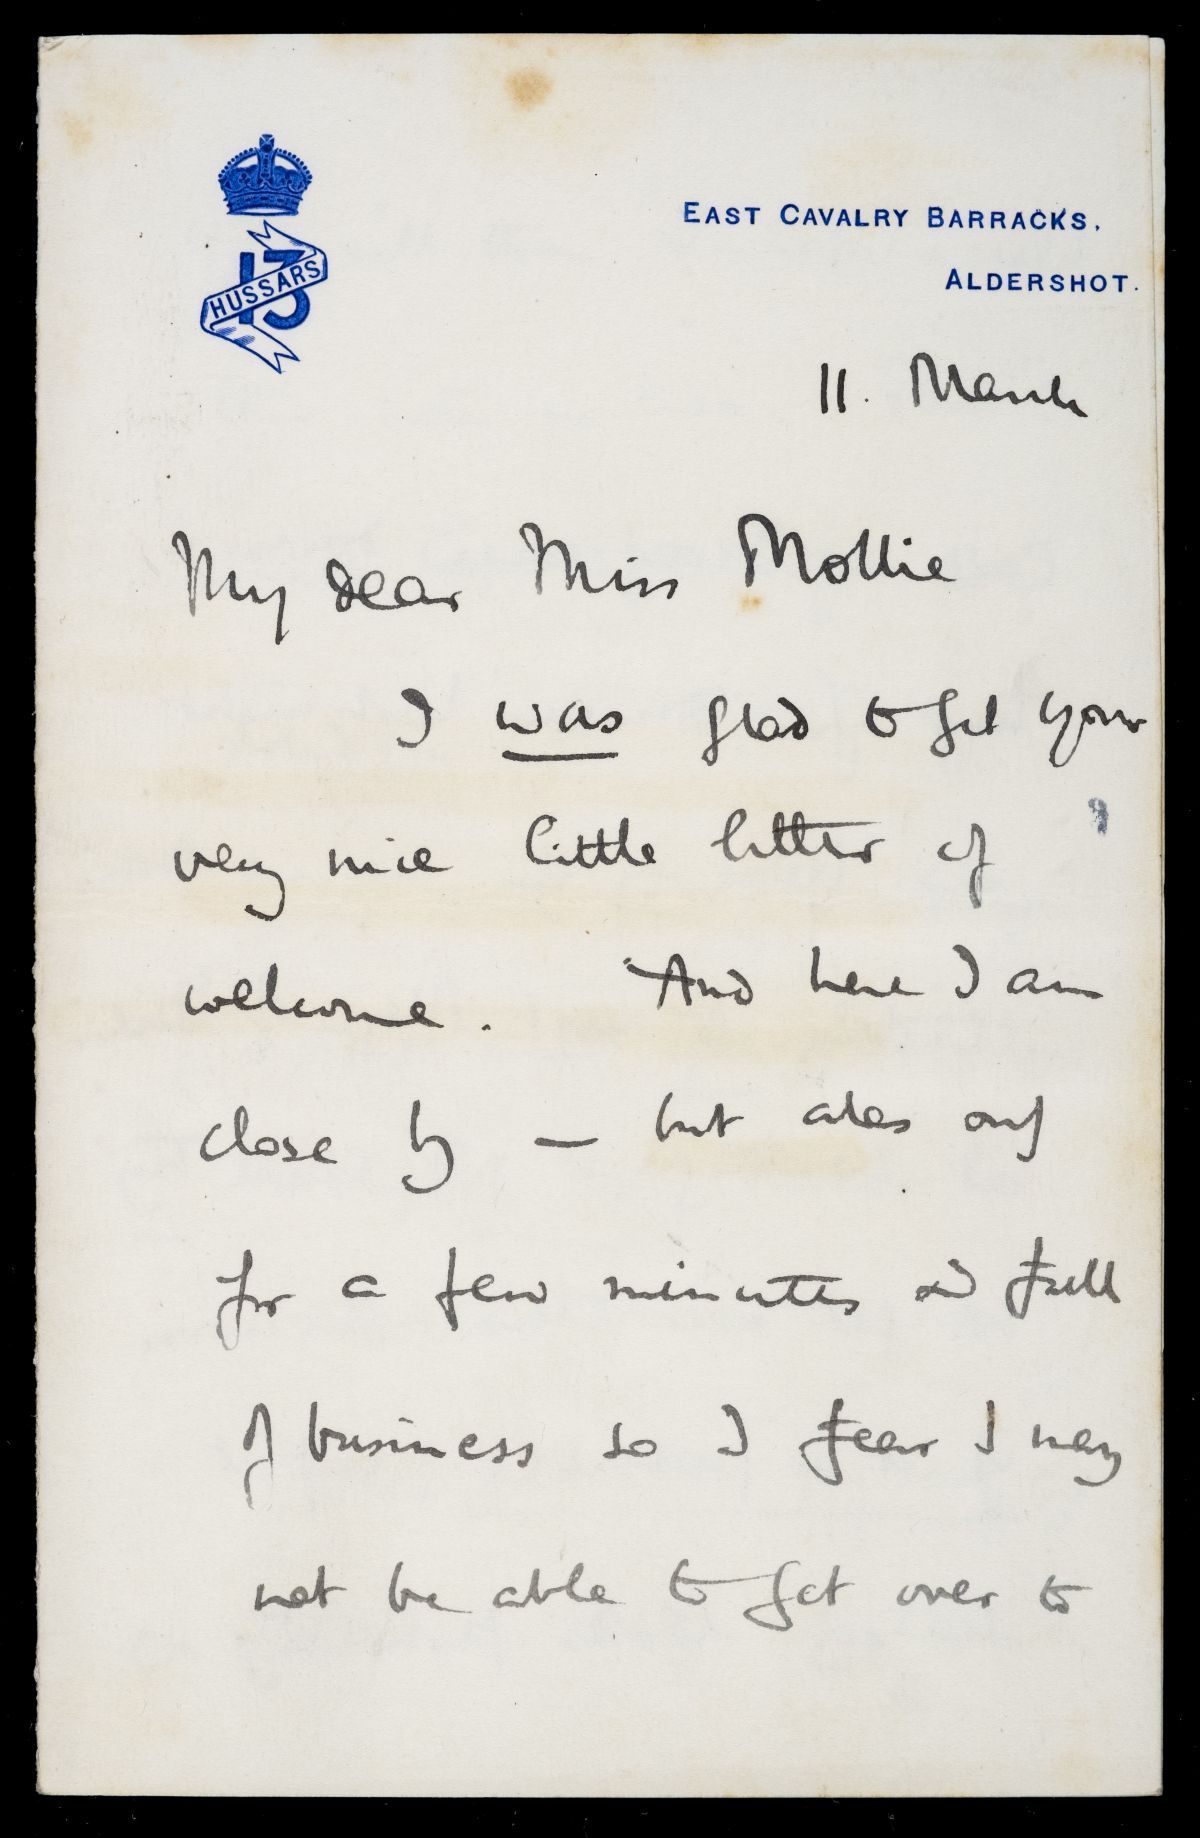 13
HUSSARS
EAST CAVALRY BARRACKS,
ALDERSHOT.
11. March
My dear Miss Mollie
I was glad to get your
very nice little letter of
welcome. And here I am
close by — but alas only
for a few minutes and full
of business so I fear I may
not be able to get over to